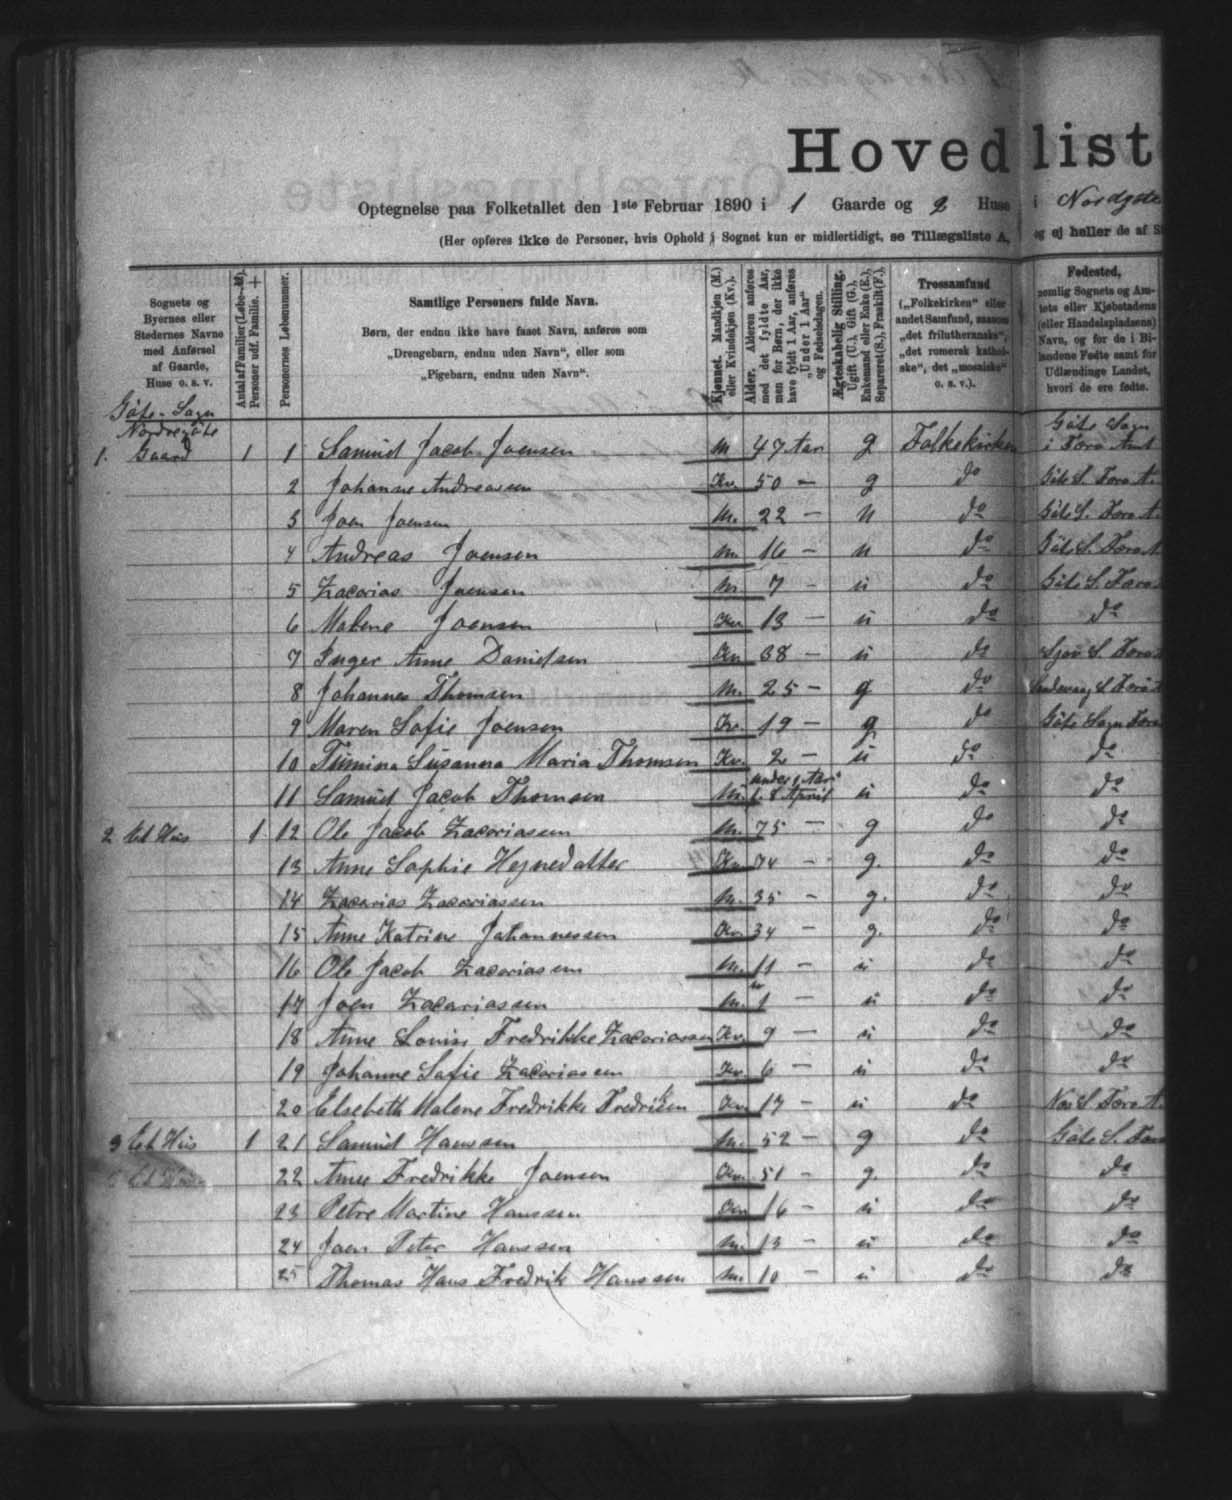 Hovedlist
Optegnelse paa Folketallet den 1ste Februar 1890 i 1 Gaarde og 2 Huse i Nordgøte
(Her opføres ikke de Personer, hvis Ophold i Sognet kun er midlertidigt, se Tillægsliste A, og ej heller de af S
Sognets og Byernes eller Stedernes Navne med Anførsel af Gaarde, Huse o. s. v.
Antal af Familier (Løbe-№). Personer udf. Familie. +
Personernes Løbenummer.
Samtlige Personers fulde Navn.
Børn, der endnu ikke have faaet Navn, anføres som
„Drengebarn, endnu uden Navn“, eller som
„Pigebarn, endnu uden Navn“.
Kjønnet. Mandkjøn (M.) eller Kvindekjøn (Kv.).
Alder. Alderen anføres med det fyldte Aar, men for Børn, der ikke have fyldt 1 Aar, anføres „Under 1 Aar“ og Fødselsdagen.
Ægteskabelig Stilling. Ugift (U.), Gift (G.), Enkemand eller Enke (E.), Separeret (S.), Fraskilt (F.).
Trossamfund
(„Folkekirken“ eller andet Samfund, saasom „det frilutheranske“, „det romersk katholske“, det „mosaiske“ o. s. v.).
Fødested,
nemlig Sognets og Amtets eller Kjøbstadens (eller Handelspladsens) Navn, og for de i Bilandene Fødte samt for Udlændinge Landet, hvori de ere fødte.
Gøte-Sogn
Nordregøte
1. Gaard 1 1 Samuel Jacob Joensen M 47 Aar g Folkekirken Gøte Sogn i Færø Amt
2 Johanne Andreassen Kv. 50 — g do Gøte S. Færø A.
3 Joen Joensen M. 22 — u do Gøte S. Færø A.
4 Andreas Joensen M. 16 — u do Gøte S. Færø A
5 Zacarias Joensen M 7 — u do Gøte S. Færø
6 Malene Joensen Kv 13 — u do do
7 Inger Anne Danielsen Kv 38 — u do Sjov S. Færø
8 Johannes Thomsen M. 25 — g do S. Færø A
9 Maren Sofie Joensen Kv. 19 — g do Gøte Sogn Færø
10 Susanna Maria Thomsen Kv. 2 — u do do
11 Samuel Jacob Thomsen M. under 1 Aar f. 8 April u do do
2 Et Hus 1 12 Ole Jacob Zacariassen M. 75 — g do do
13 Anne Sophie Hejnedatter Kv 74 — g. do do
14 Zacarias Zacariassen M. 35 — g. do do
15 Anne Katrine Johannessen Kv 34 — g. do do
16 Ole Jacob Zacariassen M. 11 — u do do
17 Joen Zacariassen M. 1 — u do do
18 Anne Louise Fredrikke Zacariassen Kv. 9 — u do do
19 Johanne Sofie Zacariassen Kv. 6 — u do do
20 Elsebeth Malene Fredrikke Fredriksen Kv. 17 — u do Næs S. Færø A.
3 Et Hus 1 21 Samuel Hanssen M. 52 — g do Gøte S. Færø
22 Anne Fredrikke Joensen Kv. 51 — g. do do
23 Petre Martine Hanssen Kv 16 — u do do
24 Joen Peter Hanssen M. 13 — u do do
25 Thomas Hans Fredrik Hanssen M. 10 — u do do